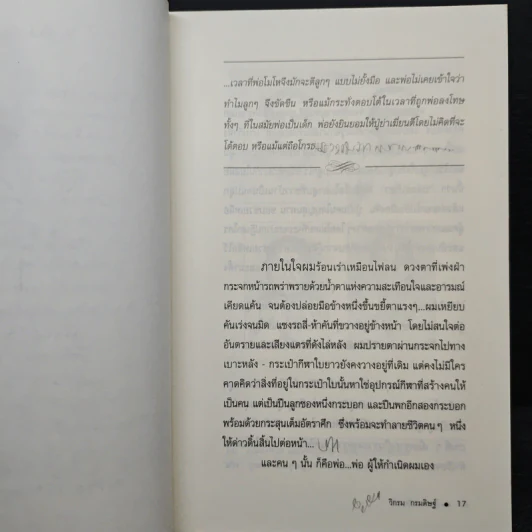 ...เวลาที่พ่อโมโหจึงมักจะตีลูกๆ แบบไม่ยั้งมือ และพ่อไม่เคยเข้าใจว่า
ทำไมลูกๆ จึงขัดขืน หรือแม้กระทั่งตอบโต้ในเวลาที่ถูกพ่อลงโทษ
ทั้งๆ ที่ในสมัยพ่อเป็นเด็ก พ่อยังยินยอมให้ปู่ย่าเฆี่ยนตีโดยไม่คิดที่จะ
โต้ตอบ หรือแม้แต่ถือโกรธ
ภายในใจผมร้อนเร่าเหมือนไฟลน ดวงตาที่เพ่งฝ่า
กระจกหน้ารถพร่าพรายด้วยน้ำตาแห่งความสะเทือนใจและอารมณ์
เคียดแค้น จนต้องปล่อยมือข้างหนึ่งขึ้นขยี้ตาแรงๆ...ผมเหยียบ
คันเร่งจนมิด แซงรถสี่-ห้าคันที่ขวางอยู่ข้างหน้า โดยไม่สนใจต่อ
อันตรายและเสียงแตรที่ดังไล่หลัง ผมปรายตาผ่านกระจกไปทาง
เบาะหลัง - กระเป๋ากีฬาใบยาวยังคงวางอยู่ที่เดิม แต่คงไม่มีใคร
คาดคิดว่าสิ่งที่อยู่ในกระเป๋าใบนั้นหาใช่อุปกรณ์กีฬาที่สร้างคนให้
เป็นคน แต่เป็นปืนลูกซองหนึ่งกระบอก และปืนพกอีกสองกระบอก
พร้อมด้วยกระสุนเต็มอัตราศึก ซึ่งพร้อมจะทำลายชีวิตคนๆ หนึ่ง
ให้ด่าวดิ้นสิ้นไปต่อหน้า...
และคน ๆ นั้น ก็คือพ่อ...พ่อ ผู้ให้กำเนิดผมเอง
วิกรม กรมดิษฐ์ ● 17